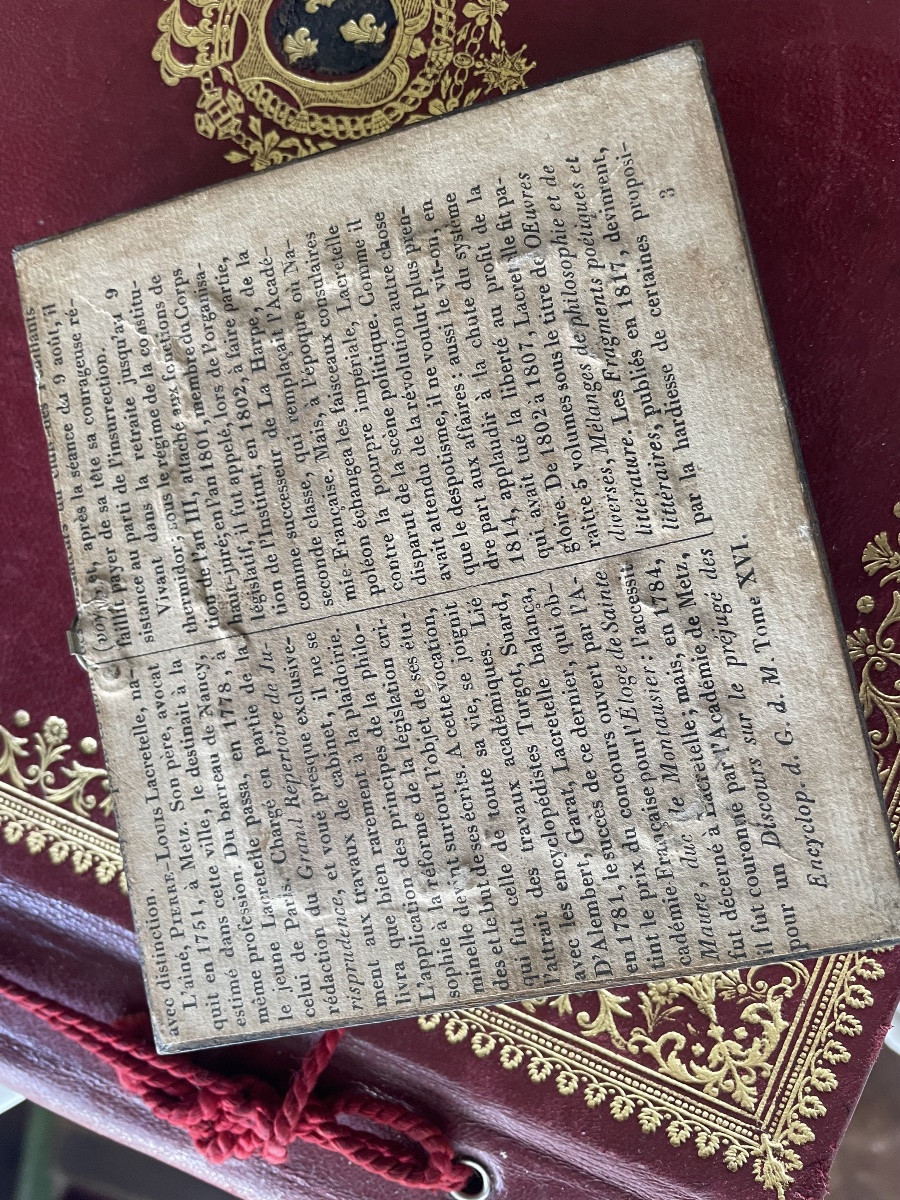 avec distinction.
L'aîné, PIERRE-Louis Lacretelle, na-
quit en 1751, à Metz. Son père, avocat
estimé dans cette ville, le destinait à la
même profession. Du barreau de Nancy,
le jeune Lacretelle passa, en 1778, à
celui de Paris. Chargé en partie de la
rédaction du Grand Répertoire de Ju-
risprudence, et voué presque exclusive-
aux travaux de cabinet, il ne se
ment que bien rarement à la plaidoirie.
livra
L'application des principes de la philo-
sophie à la réforme de la législation cri-
minelle devint surtout l'objet de ses étu-
des et le but de ses écrits. A cette vocation,
qui fut celle de toute sa vie, se joignit
l'attrait des travaux académiques. Lié
avec les encyclopédistes Turgot, Suard,
D'Alembert, Garat, Lacretelle balança,
en 1781, le succès de ce dernier, qui ob-
tint le prix du concours ouvert par l'A-
cadémie Française pour l'Éloge de Sainte
Maure, duc de Montausier: l'accessit
fut décerné à Lacretelle; mais, en 1784,
il fut couronné par l'Académie de Metz,
pour un Discours sur le préjugé des
Encyclop. d. G. d. M. Tome XVI.
après la séance du 9 août, il
fallit payer de sa tête sa courageuse ré-
sistance au parti de l'insurrection.
Vivant dans la retraite jusqu'au 9
thermidor, sous le régime de la constitu-
tion de l'an III, attaché aux fonctions de
haut-juré; en l'an 1801, membre du Corps
législatif, il fut appelé, lors de l'organisa-
tion de l'Institut, en 1802, à faire partie,
comme successeur de La Harpe, de la
seconde classe, qui remplaçait l'Acadé-
mie Française. Mais, à l'époque où Na-
poléon échangea les faisceaux consulaires
contre la pourpre impériale, Lacretelle
disparut de la scène politique. Comme il
avait attendu de la révolution autre chose
que le despotisme, il ne voulut plus pren-
dre part aux affaires: aussi le vit-on, en
1814, applaudir à la chute du système
qui avait tué la liberté au profit de la
gloire. De 1802 à 1807, Lacretelle fit pa-
raître 5 volumes sous le titre de OEuvres
diverses, Mélanges de philosophie et de
littérature. Les Fragments poétiques et
littéraires, publiés en 1817, devinrent,
par la hardiesse de certaines proposi-
3